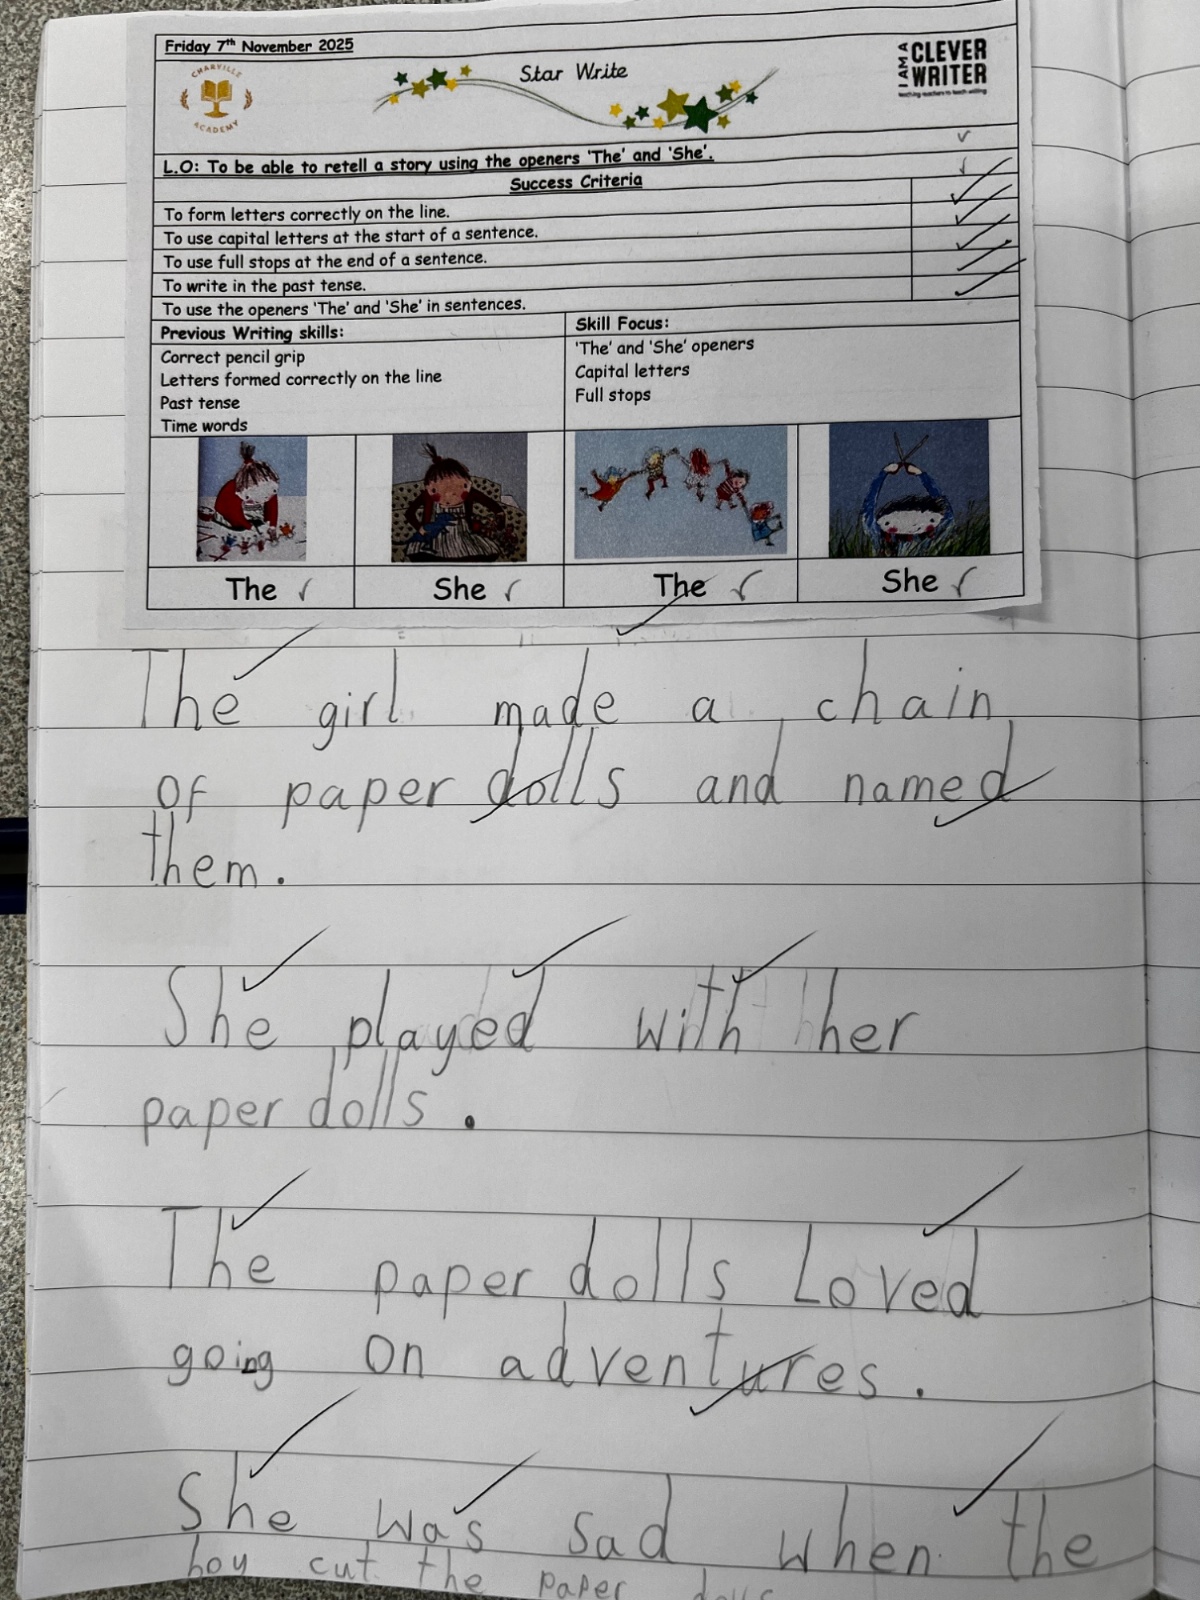 Friday 7th November 2025
CHARVILLE
ACADEMY
Star Write
I AM A
CLEVER
WRITER
teaching teachers to teach writing
L.O: To be able to retell a story using the openers 'The' and 'She'.
Success Criteria
To form letters correctly on the line.
To use capital letters at the start of a sentence.
To use full stops at the end of a sentence.
To write in the past tense.
To use the openers 'The' and 'She' in sentences.
Previous Writing skills:
Correct pencil grip
Letters formed correctly on the line
Past tense
Time words
Skill Focus:
'The' and 'She' openers
Capital letters
Full stops
The
She
The
She
The girl made a chain
of paper dolls and named
them.
She played with her
paper dolls.
The paper dolls Loved
going on adventures.
She was sad when the
boy cut the paper dolls